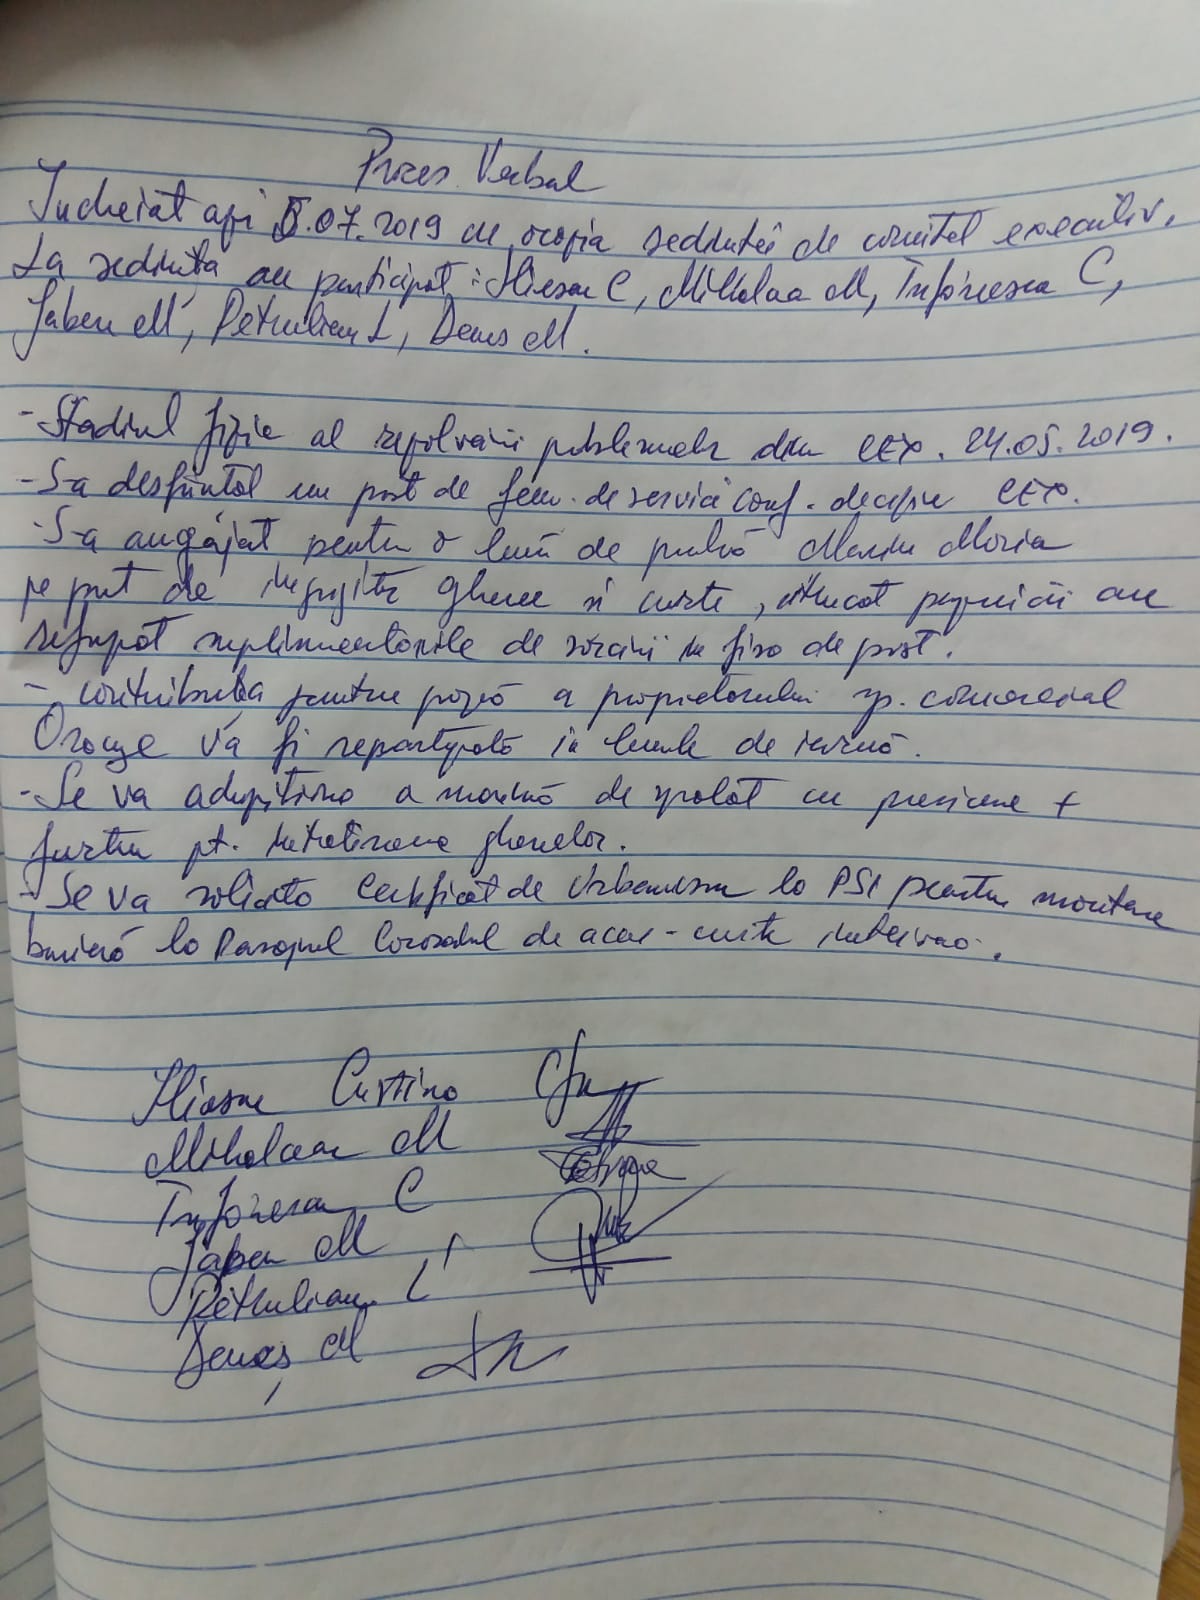 Proces Verbal
Incheiat azi 8.07.2019 cu ocazia sedintei de comitet executiv.
La sedinta au participat: Iliescu C, Mihalcea M,
M, Petrulian L, Denes M.
- Stadiul fizic al rezolvarii problemelor din CEX. 24.05.2019.
- S-a desfintat un post de fem. de servici conf. decizie CEX.
- S-a angajat pentru o luna de proba Marin Maria
pe post de ingrijitor ghene si curte, intrucat paznicii au
refuzat suplimentarile de sarcini in fisa de post.
- contributia pentru paza a proprietarului sp. comercial
Orange va fi repartizata in lunile de iarna.
- Se va achizitiona o masina de spalat cu presiune +
furtun pt. intretinerea ghenelor.
- Se va solicita Certificat de Urbanism la PS1 pentru montare
bariera la Pasajul Coridorul de acces - curte interioara.
Iliescu Cristina
Mihalcea M
C
M
Petrulian L
Deneș M